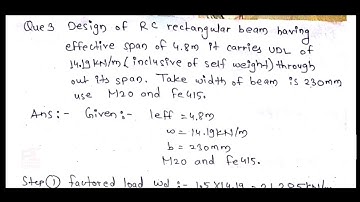 Que 3 Design of RC rectangular beam having
effective span of 4.8m it carries UDL of
14.19kN/m (inclusive of self weight) through
out its span. Take width of beam is 230mm
use M20 and fe415.
Ans:- Given:- leff = 4.8m
w = 14.19kN/m
b = 230mm
M20 and fe415.
Step ① factored load wd :- 1.5×14.19 = 21.285kN/m